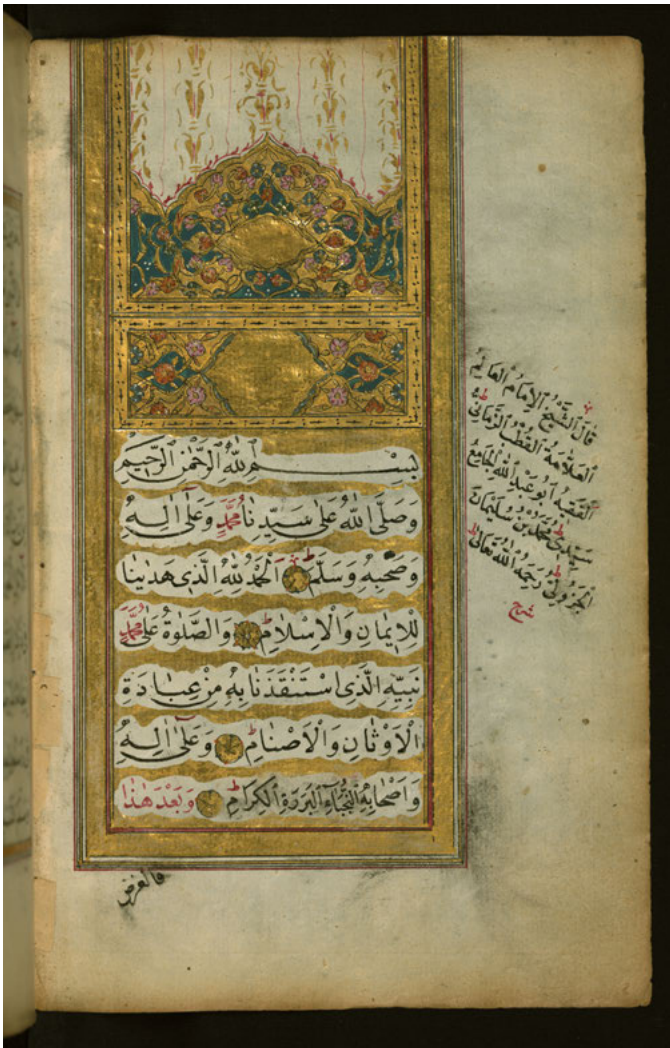 بِسْمِ اللّٰهِ الرَّحْمٰنِ الرَّحِيمِ
وَصَلَّى اللّٰهُ عَلٰى سَيِّدِنَا مُحَمَّدٍ وَعَلٰٓى اٰلِهِ
وَصَحْبِهِ وَسَلَّمَ اَلْحَمْدُ لِلّٰهِ الَّذِى هَدٰينَا
لِلْاِيمَانِ وَالْاِسْلَامِ وَالصَّلٰوةُ عَلٰى مُحَمَّدٍ
نَبِيِّهِ الَّذِى اسْتَنْقَذَنَا بِهِ مِنْ عِبَادَةِ
الْاَوْثَانِ وَالْاَصْنَامِ وَعَلٰٓى اٰلِهِ
وَاَصْحَابِهِ النُّجَبَآءِ الْبَرَرَةِ الْكِرَامِ وَبَعْدَ هٰذَا
فالغرض
قَالَ الشَّيْخُ الْاِمَامُ الْعَالِمُ
اَلْعَلَّامَةُ الْقُطْبُ الزَّمَانِىُّ
الْفَقِيهُ اَبُو عَبْدِ اللّٰهِ الْجَامِعُ
سَيِّدِى مُحَمَّدُ بْنُ سُلَيْمَانَ
الْجَزُولِىُّ رَحِمَهُ اللّٰهُ تَعَالٰى
شرح